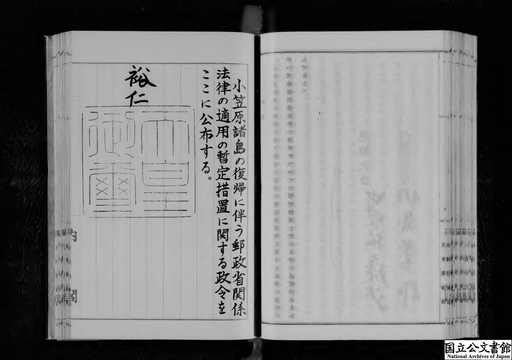 小笠原諸島の復帰に伴う郵政省関係
法律の適用の暫定措置に関する政令を
ここに公布する。
裕仁
天皇
御璽
内閣
国立公文書館
National Archives of Japan